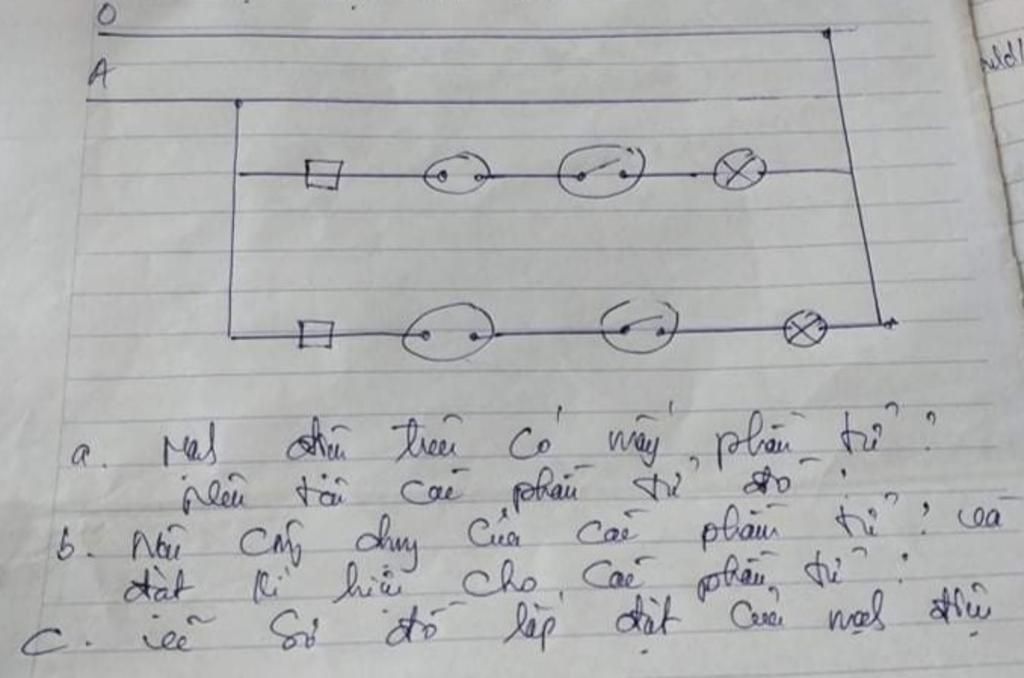 O
A
a. Mạch điện trên có mấy phần tử?
Nêu tên các phần tử đó?
b. Nêu công dụng của các phần tử? và
đặt kí hiệu cho các phần tử?
c. vẽ sơ đồ lắp đặt của mạch điện